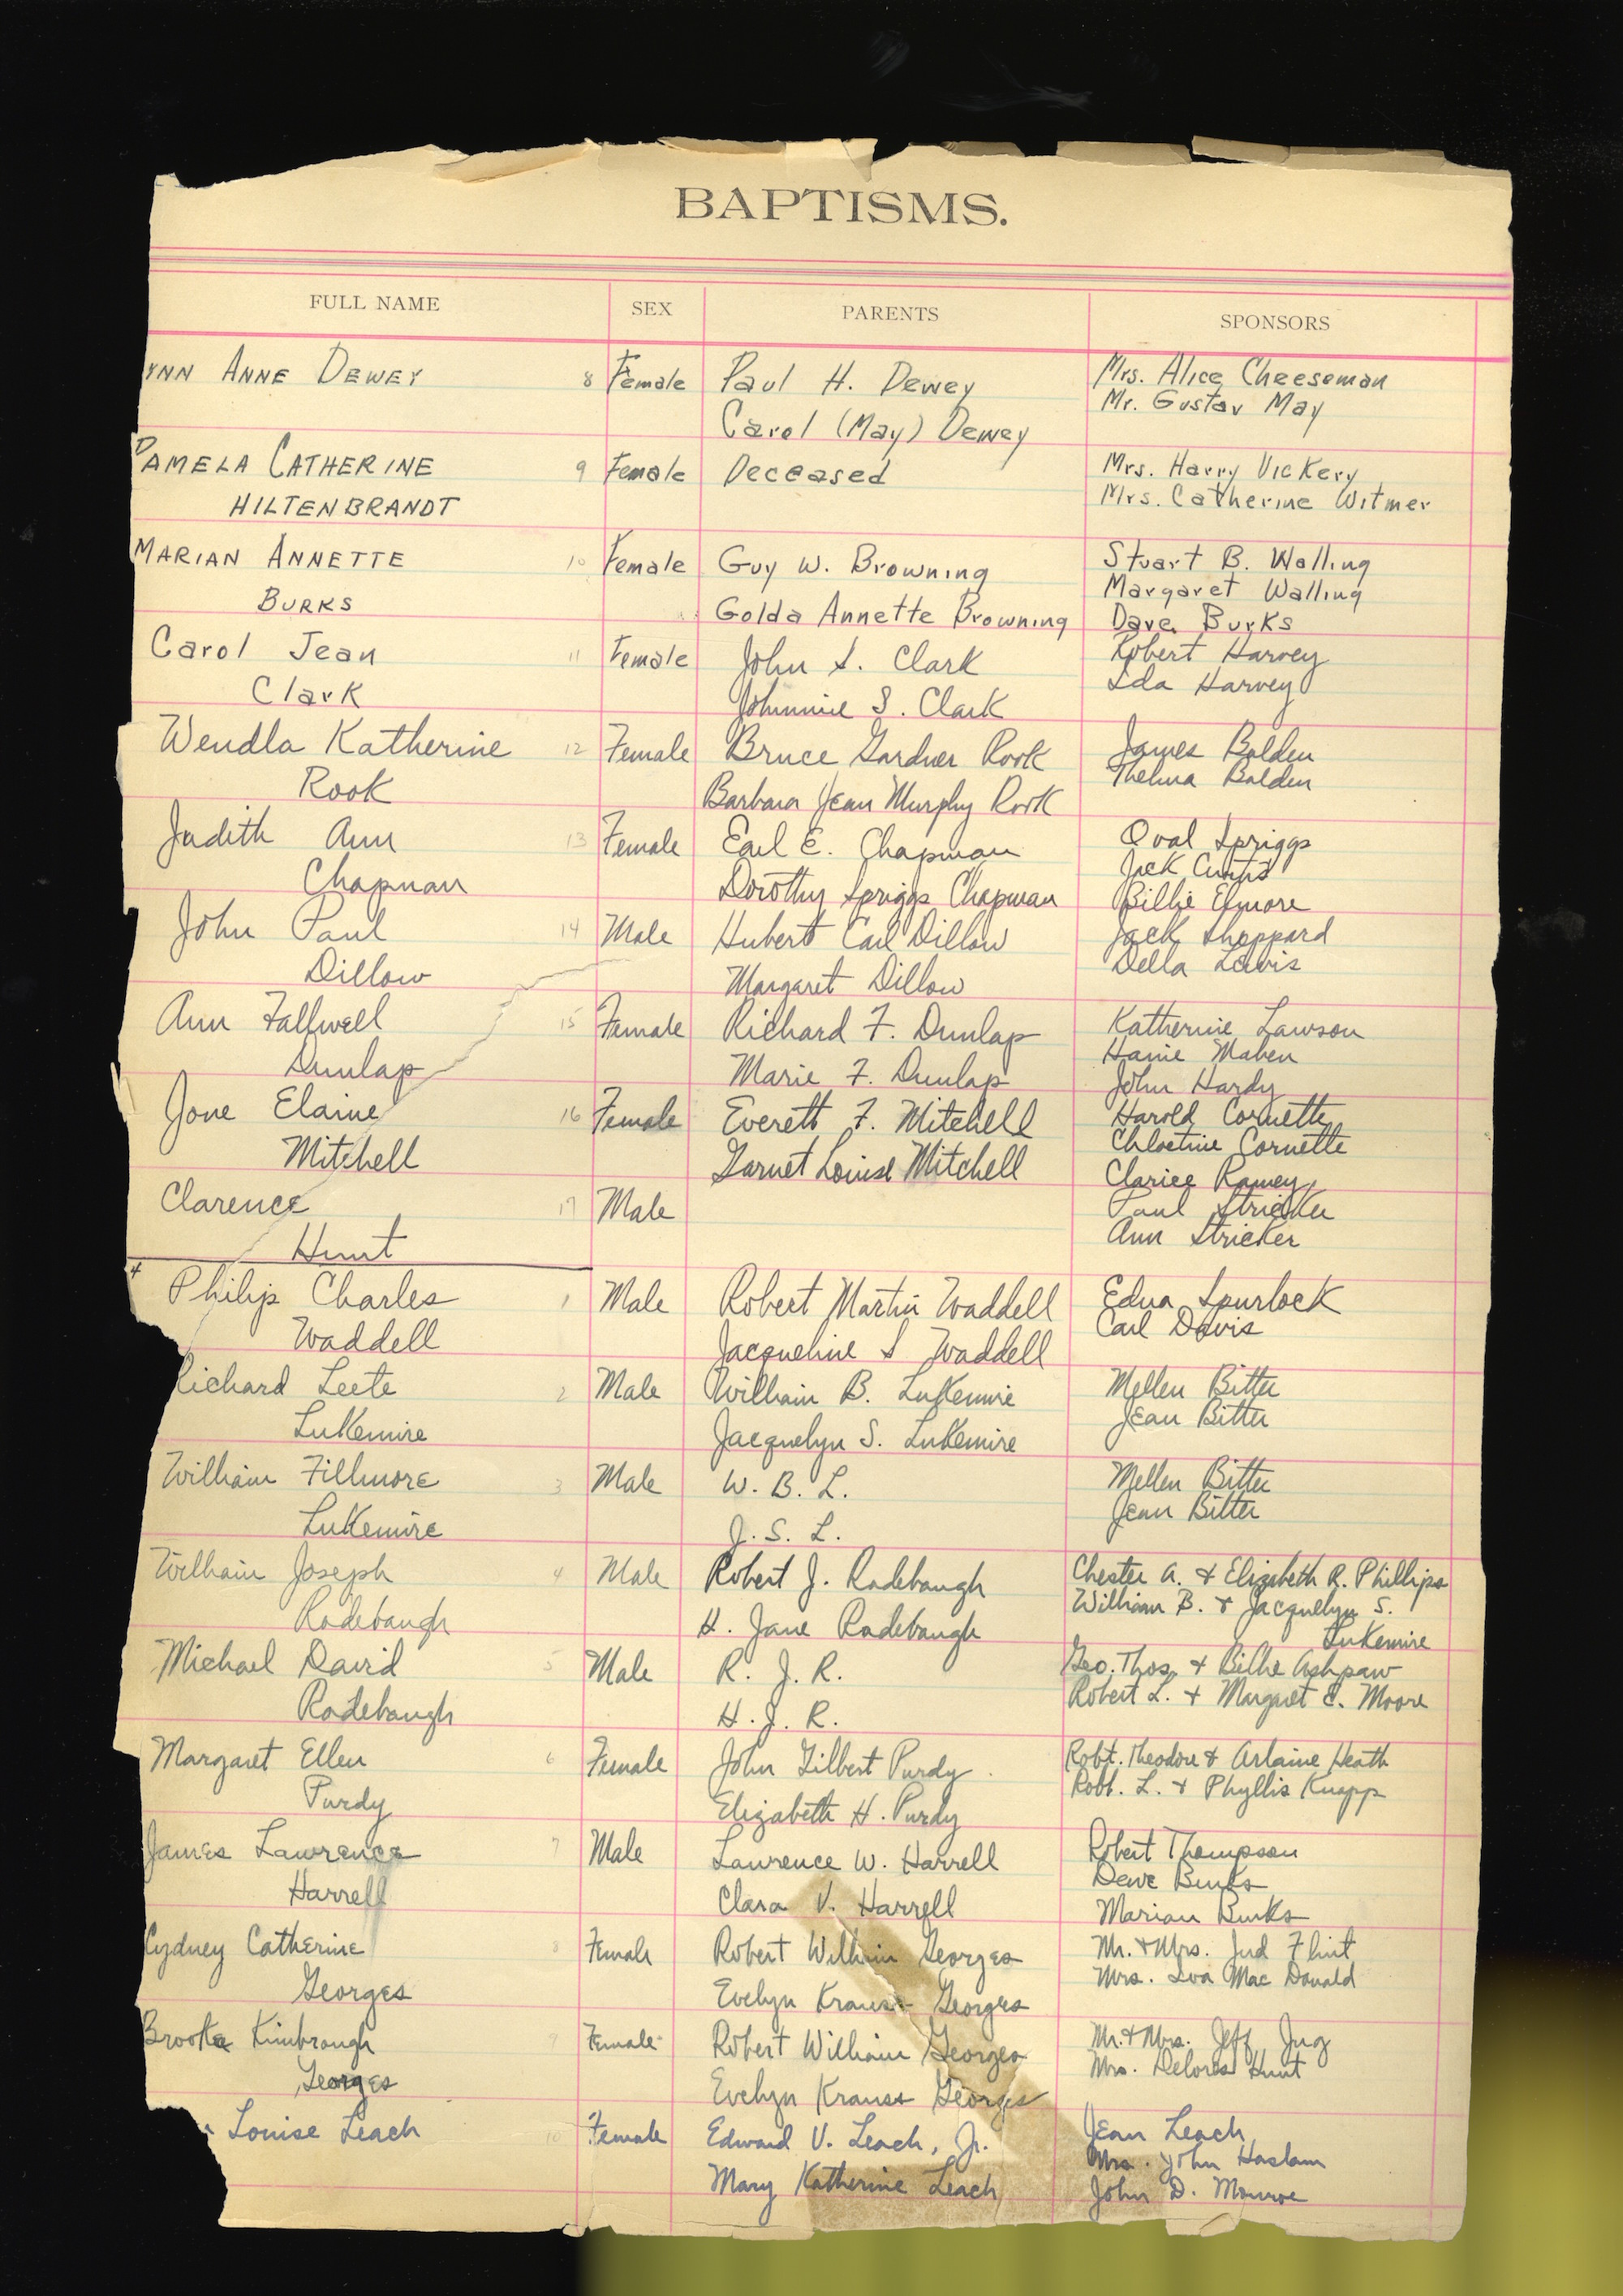 BAPTISMS.
FULL NAME SEX PARENTS SPONSORS
YNN ANNE DEWEY 8 Female Paul H. Dewey Mrs. Alice Cheeseman
Mr. Gustav May
Carol (May) Dewey
PAMELA CATHERINE 9 Female Deceased Mrs. Harry Vickery
HILTENBRANDT Mrs. Catherine Witmer
MARIAN ANNETTE 10 Female Guy W. Browning Stuart B. Walling
Margaret Walling
BURKS Golda Annette Browning Dave Burks
Carol Jean 11 Female John S. Clark Robert Harvey
Ida Harvey
Clark Johnnie S. Clark
Wendla Katherine 12 Female Bruce Gardner Rook James Bolden
Thelma Bolden
Rook Barbara Jean Murphy Rook
Judith Ann 13 Female Earl E. Chapman Oval Spriggs
Jack Curtis
Chapman Dorothy Spriggs Chapman Billie Elmore
John Paul 14 Male Hubert Carl Dillow Jack Sheppard
Della Lewis
Dillow Margaret Dillow
Ann Fallwell 15 Female Richard F. Dunlap Katherine Lawson
Maben
Dunlap Marie F. Dunlap John Hardy
Jone Elaine 16 Female Everett F. Mitchell Harold Cornette
Chloetine Cornette
Mitchell Garnet Louise Mitchell Clarice Ramey
Clarence 17 Male Paul Stricker
Ann Stricker
Hunt
Philip Charles 1 Male Robert Martin Waddell Edna Spurlock
Carl Davis
Waddell Jacqueline S Waddell
Richard Leete 2 Male William B. LuKemire Mellen Bitter
Jean Bitter
LuKemire Jacquelyn S. LuKemire
William Fillmore 3 Male W. B. L. Mellen Bitter
Jean Bitter
LuKemire J. S. L.
William Joseph 4 Male Robert J. Radebaugh Chester A. & Elizabeth R. Phillips
William B. & Jacquelyn S.
Radebaugh H. Jane Radebaugh LuKemire
Michael David 5 Male R. J. R. Geo. Thos. & Billie Ashpaw
Robert L. & Margaret E. Moore
Radebaugh H. J. R.
Margaret Ellen 6 Female John Gilbert Purdy Robt. Theodore & Arlaine Heath
Robt. L. & Phyllis Knapp
Purdy Elizabeth H. Purdy
James Lawrence 7 Male Lawrence W. Harrell Robert Thompson
Dave Burks
Harrell Clara V. Harrell Marian Burks
Cydney Catherine 8 Female Robert William Georges Mr. & Mrs. Jud Flint
Mrs. Iva Mac Donald
Georges Evelyn Krauss Georges
Brooke Kimbrough 9 Female Robert William Georges Mr. & Mrs. Jeff Jug
Mrs. Delores Hunt
Georges Evelyn Krauss Georges
Louise Leach 10 Female Edward V. Leach, Jr. Jean Leach
Mrs. John Haslam
Mary Katherine Leach John D. Monroe